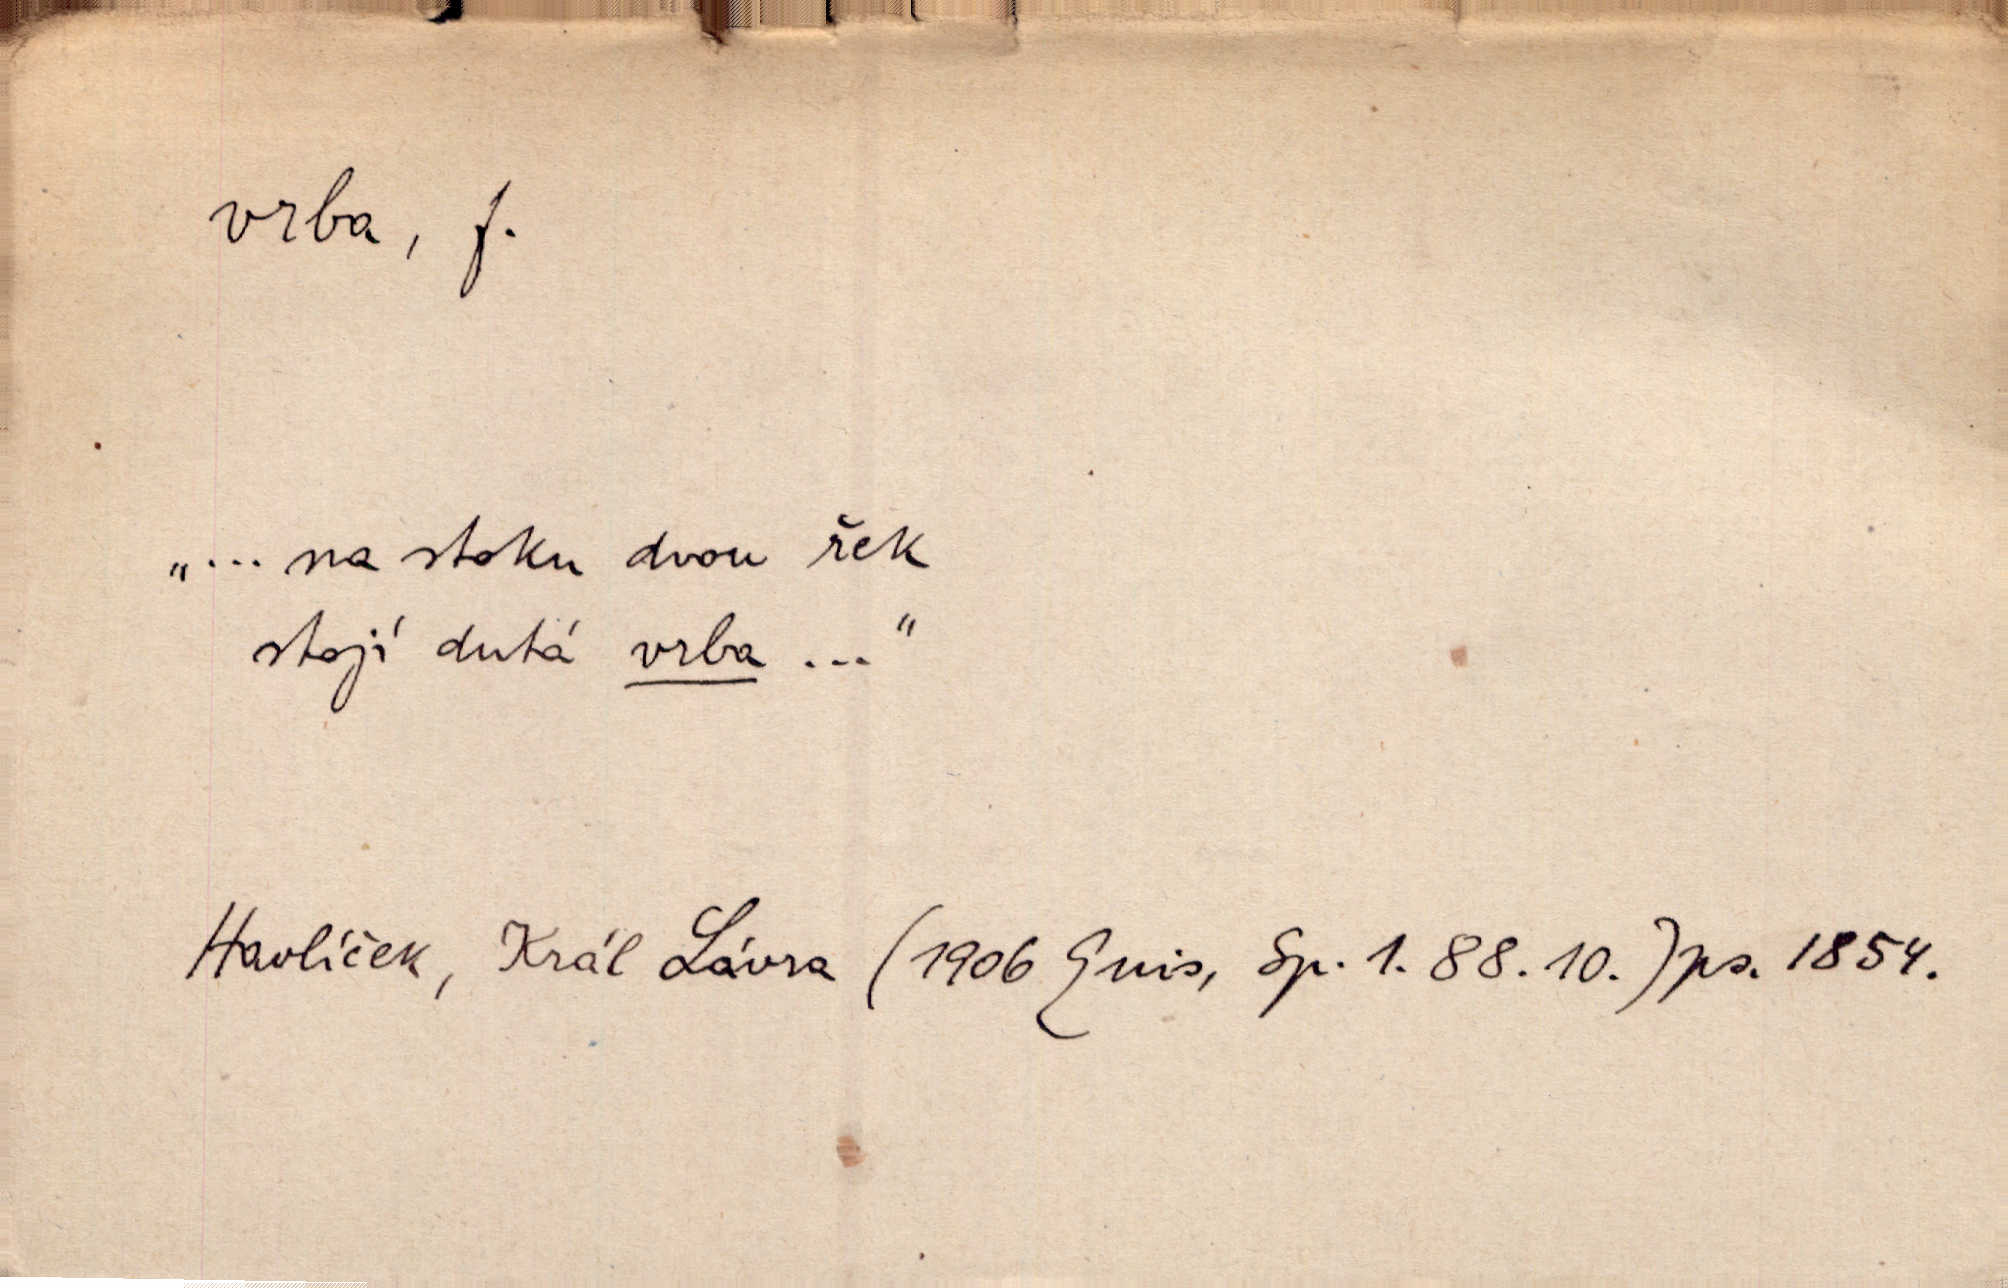 vrba, f.
„... na stoku dvou řek
stojí dutá vrba ..."
Havlíček, Král Lávra (1906 Quis, Sp. 1. 88. 10.) ps. 1854.